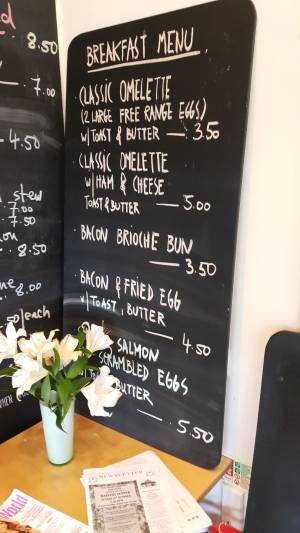 8.50
7.00
4.50
stew
7.00
7.50
8.50
8.00
50/each
BREAKFAST MENU
CLASSIC OMELETTE
(2 LARGE FREE RANGE EGGS)
W/TOAST & BUTTER — 3.50
CLASSIC OMELETTE
W/HAM & CHEESE
TOAST & BUTTER — 5.00
BACON BRIOCHE BUN
— 3.50
BACON & FRIED EGG
W/TOAST, BUTTER
— 4.50
SALMON
SCRAMBLED EGGS
BUTTER
— 5.50
NEWSLETTER